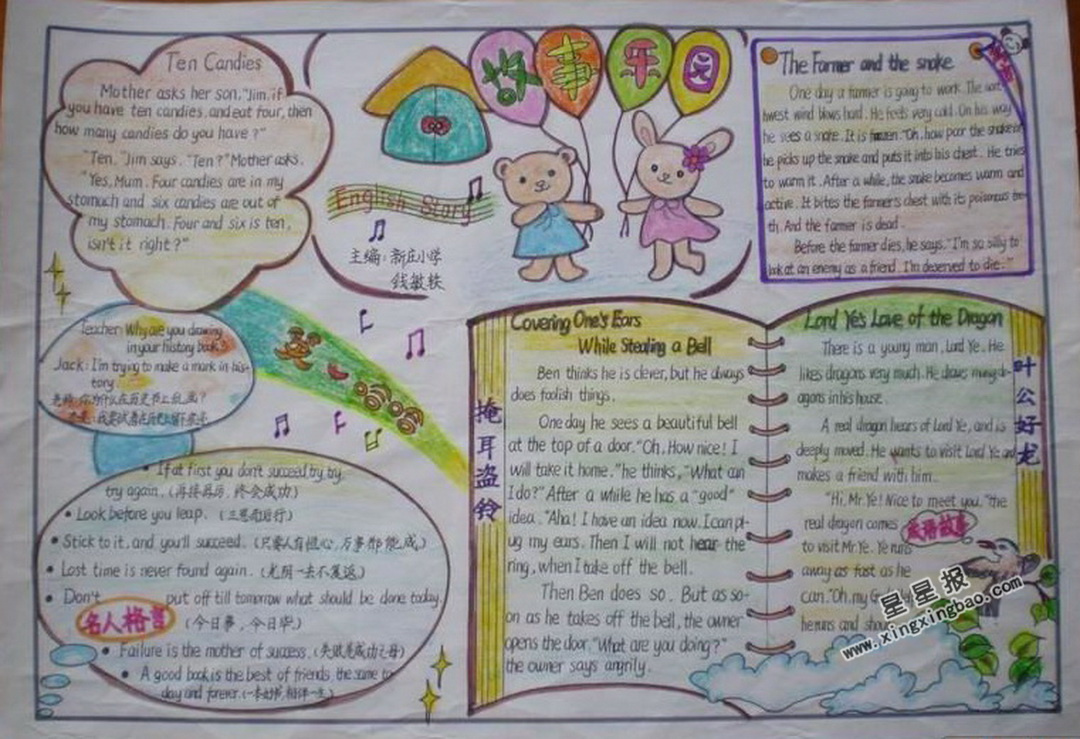 Ten Candies
Mother asks her son, "Jim, if
you have ten candies, and eat four, then
how many candies do you have?"
"Ten," Jim says. "Ten?" Mother asks.
"Yes, Mum. Four candies are in my
stomach and six candies are out of
my stomach. Four and six is ten,
isn't it right?"
故事乐园
English Story
主编：新庄小学
钱敏轶
The Farmer and the snake
One day a farmer is going to work. The
west wind blows hard. He feels very cold. On his way
he sees a snake. It is frozen. "Oh, how poor the snake
he picks up the snake and puts it into his chest. He tries
to warm it. After a while, the snake becomes warm and
active. It bites the farmer's chest with its poisonous
th. And the farmer is dead.
Before the farmer dies, he says, "I'm so silly to
look at an enemy as a friend. I'm deserved to die."
Teacher: Why are you drawing
in your history book?
Jack: I'm trying to make a mark in his-
tory.
If at first you don't succeed, try, try,
try again. (再接再厉，终会成功)
• Look before you leap. (三思而后行)
• Stick to it, and you'll succeed. (只要人有恒心，万事都能成)
• Lost time is never found again. (光阴一去不复返)
• Don't put off till tomorrow what should be done today.
名人格言 (今日事，今日毕)
• Failure is the mother of success. (失败是成功之母)
• A good book is the best of friends, the same to
day and forever. (一本好书，相伴一生)
掩耳盗铃
Covering One's Ears
While Stealing a Bell
Ben thinks he is clever, but he always
does foolish things.
One day he sees a beautiful bell
at the top of a door. "Oh. How nice! I
will take it home." he thinks, "What can
I do?" After a while he has a "good"
idea. "Aha! I have an idea now. I can pl-
ug my ears. Then I will not hear the
ring, when I take off the bell.
Then Ben does so. But as so-
on as he takes off the bell, the owner
opens the door. "What are you doing?"
the owner says angrily.
Lord Ye's Love of the Dragon
There is a young man, Lord Ye. He
likes dragons very much. He draws many d-
agons in his house.
A real dragon hears of Lord Ye, and is
deeply moved. He wants to visit Lord Ye and
makes a friend with him.
"Hi, Mr. Ye! Nice to meet you." the
real dragon comes
to visit Mr. Ye. Ye runs
away as fast as he
can. "Oh, my
he runs and
成语故事
叶公好龙
星星报
www.xingxingbao.com